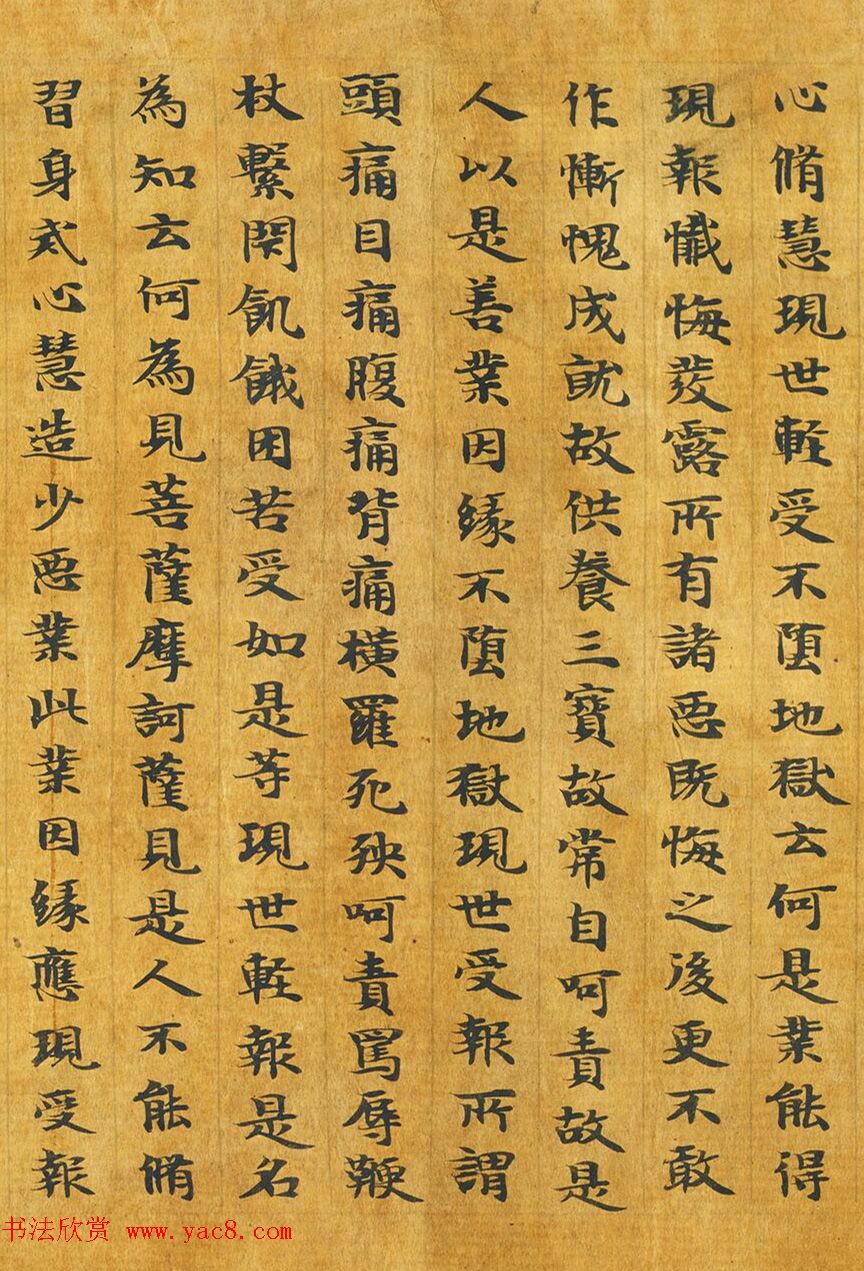 心脩慧現世輕受不堕地獄云何是業能得
現報懺悔發露所有諸惡既悔之後更不敢
作慚愧成就故供養三寶故常自呵責故是
人以是善業因緣不墮地獄現世受報所謂
頭痛目痛腹痛背痛橫羅死殃呵責罵辱鞭
杖繫閇飢餓困苦受如是等現世輕報是名
為知云何為見菩薩摩訶薩見是人不能脩
習身戒心慧造少惡業此業因緣應現受報
书法欣赏 www.yac8.com